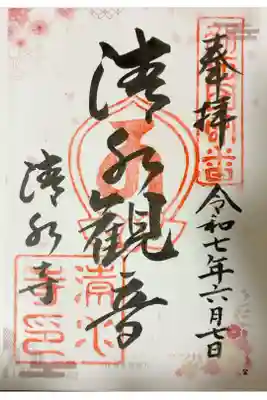 奉拝
令和七年六月七日
清水観音
清水寺
清水寺印